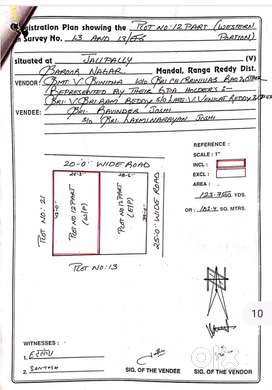 Registration Plan showing the PLOT NO: 12 PART (WESTERN
in Survey No. 13 AND 13/ PORTION)
situated at JALLPALLY (V)
Mandal, Ranga Reddy Dist.
VENDOR : SMT. V SUNITHA W/O SRI CH SRINIVAS RAO,
REPRESENTED BY THEIR GPA HOLDERS:-
SRI: V SRI RAM REDDY S/O LATE: V. VENKAT REDDY
VENDEE: SRI: RAVINDER JOSHI
S/o SRI. LAXMINARAYAN JOSHI
REFERENCE :
SCALE : 1"
INCL :
EXCL :
AREA :
SQ. YDS
or SQ. MTRS.
20-0" WIDE ROAD
PLOT NO: 21
PLOT NO 12 PART
(W/P)
PLOT NO 12 PART
(E/P)
25-0" WIDE ROAD
PLOT NO: 13
10
WITNESSES :
1.
2.
SIG. OF THE VENDEE
SIG. OF THE VENDOR
OLX